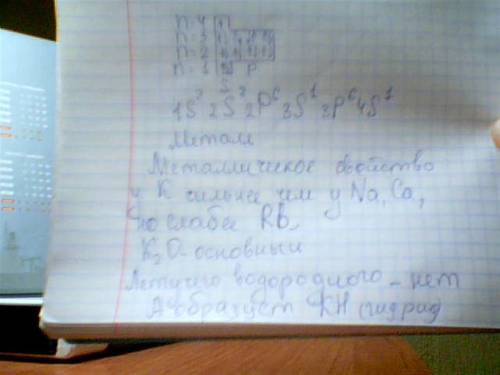 n=4
n=3
n=2
n=1 S P
1S² 2S² 2P⁶ 3S¹ 3P⁶ 4S¹
Метал
Металлическое свойство
у К сильнее чем у Na, Ca,
но слабее Rb,
K₂O-основный
Летучего водородного - нет
А образуст KH (гидрид